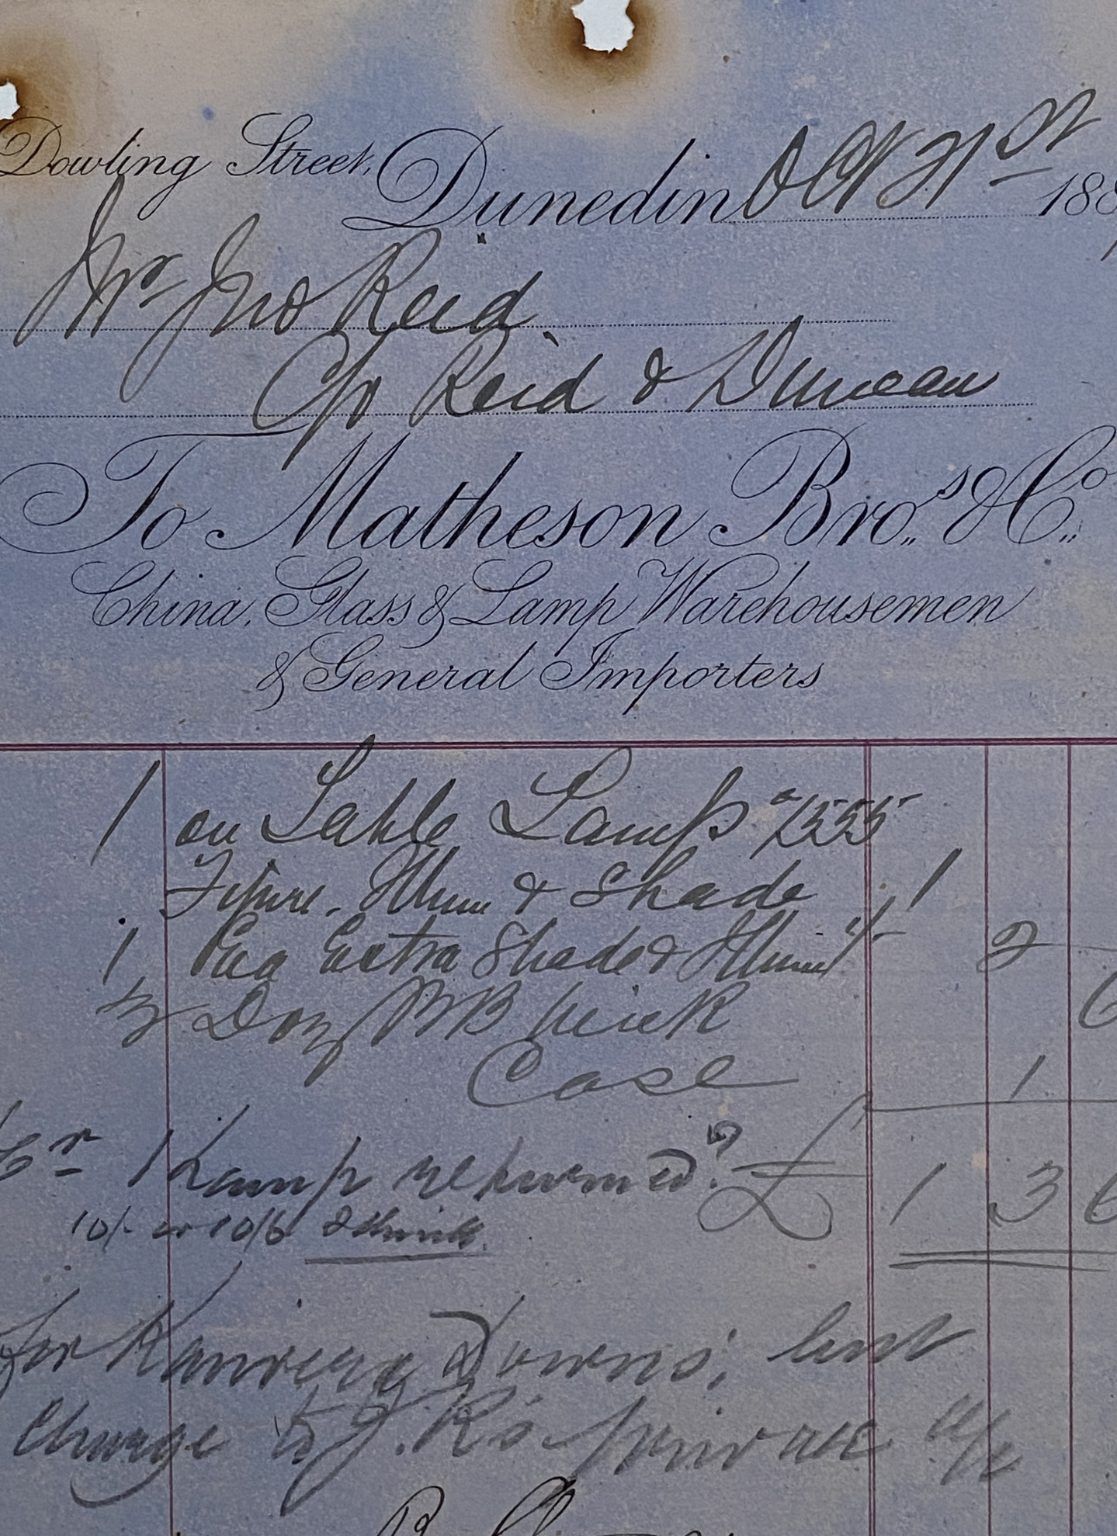 Dowling Street, Dunedin Oct 21st 188
Mr Jno Reid
C/o Reid & Duncan
To Matheson Bros. & Co.
China, Glass & Lamp Warehousemen
& General Importers
1 on Table Lamp 7555
Figure. & Shade 1
1 Extra Shade & 2
Doz BB Wick
Case 1
Cr 1 Lamp returned? £ 1 3
10/- or 10/6 I think
for Downs; but
Charge to J. R's private a/c